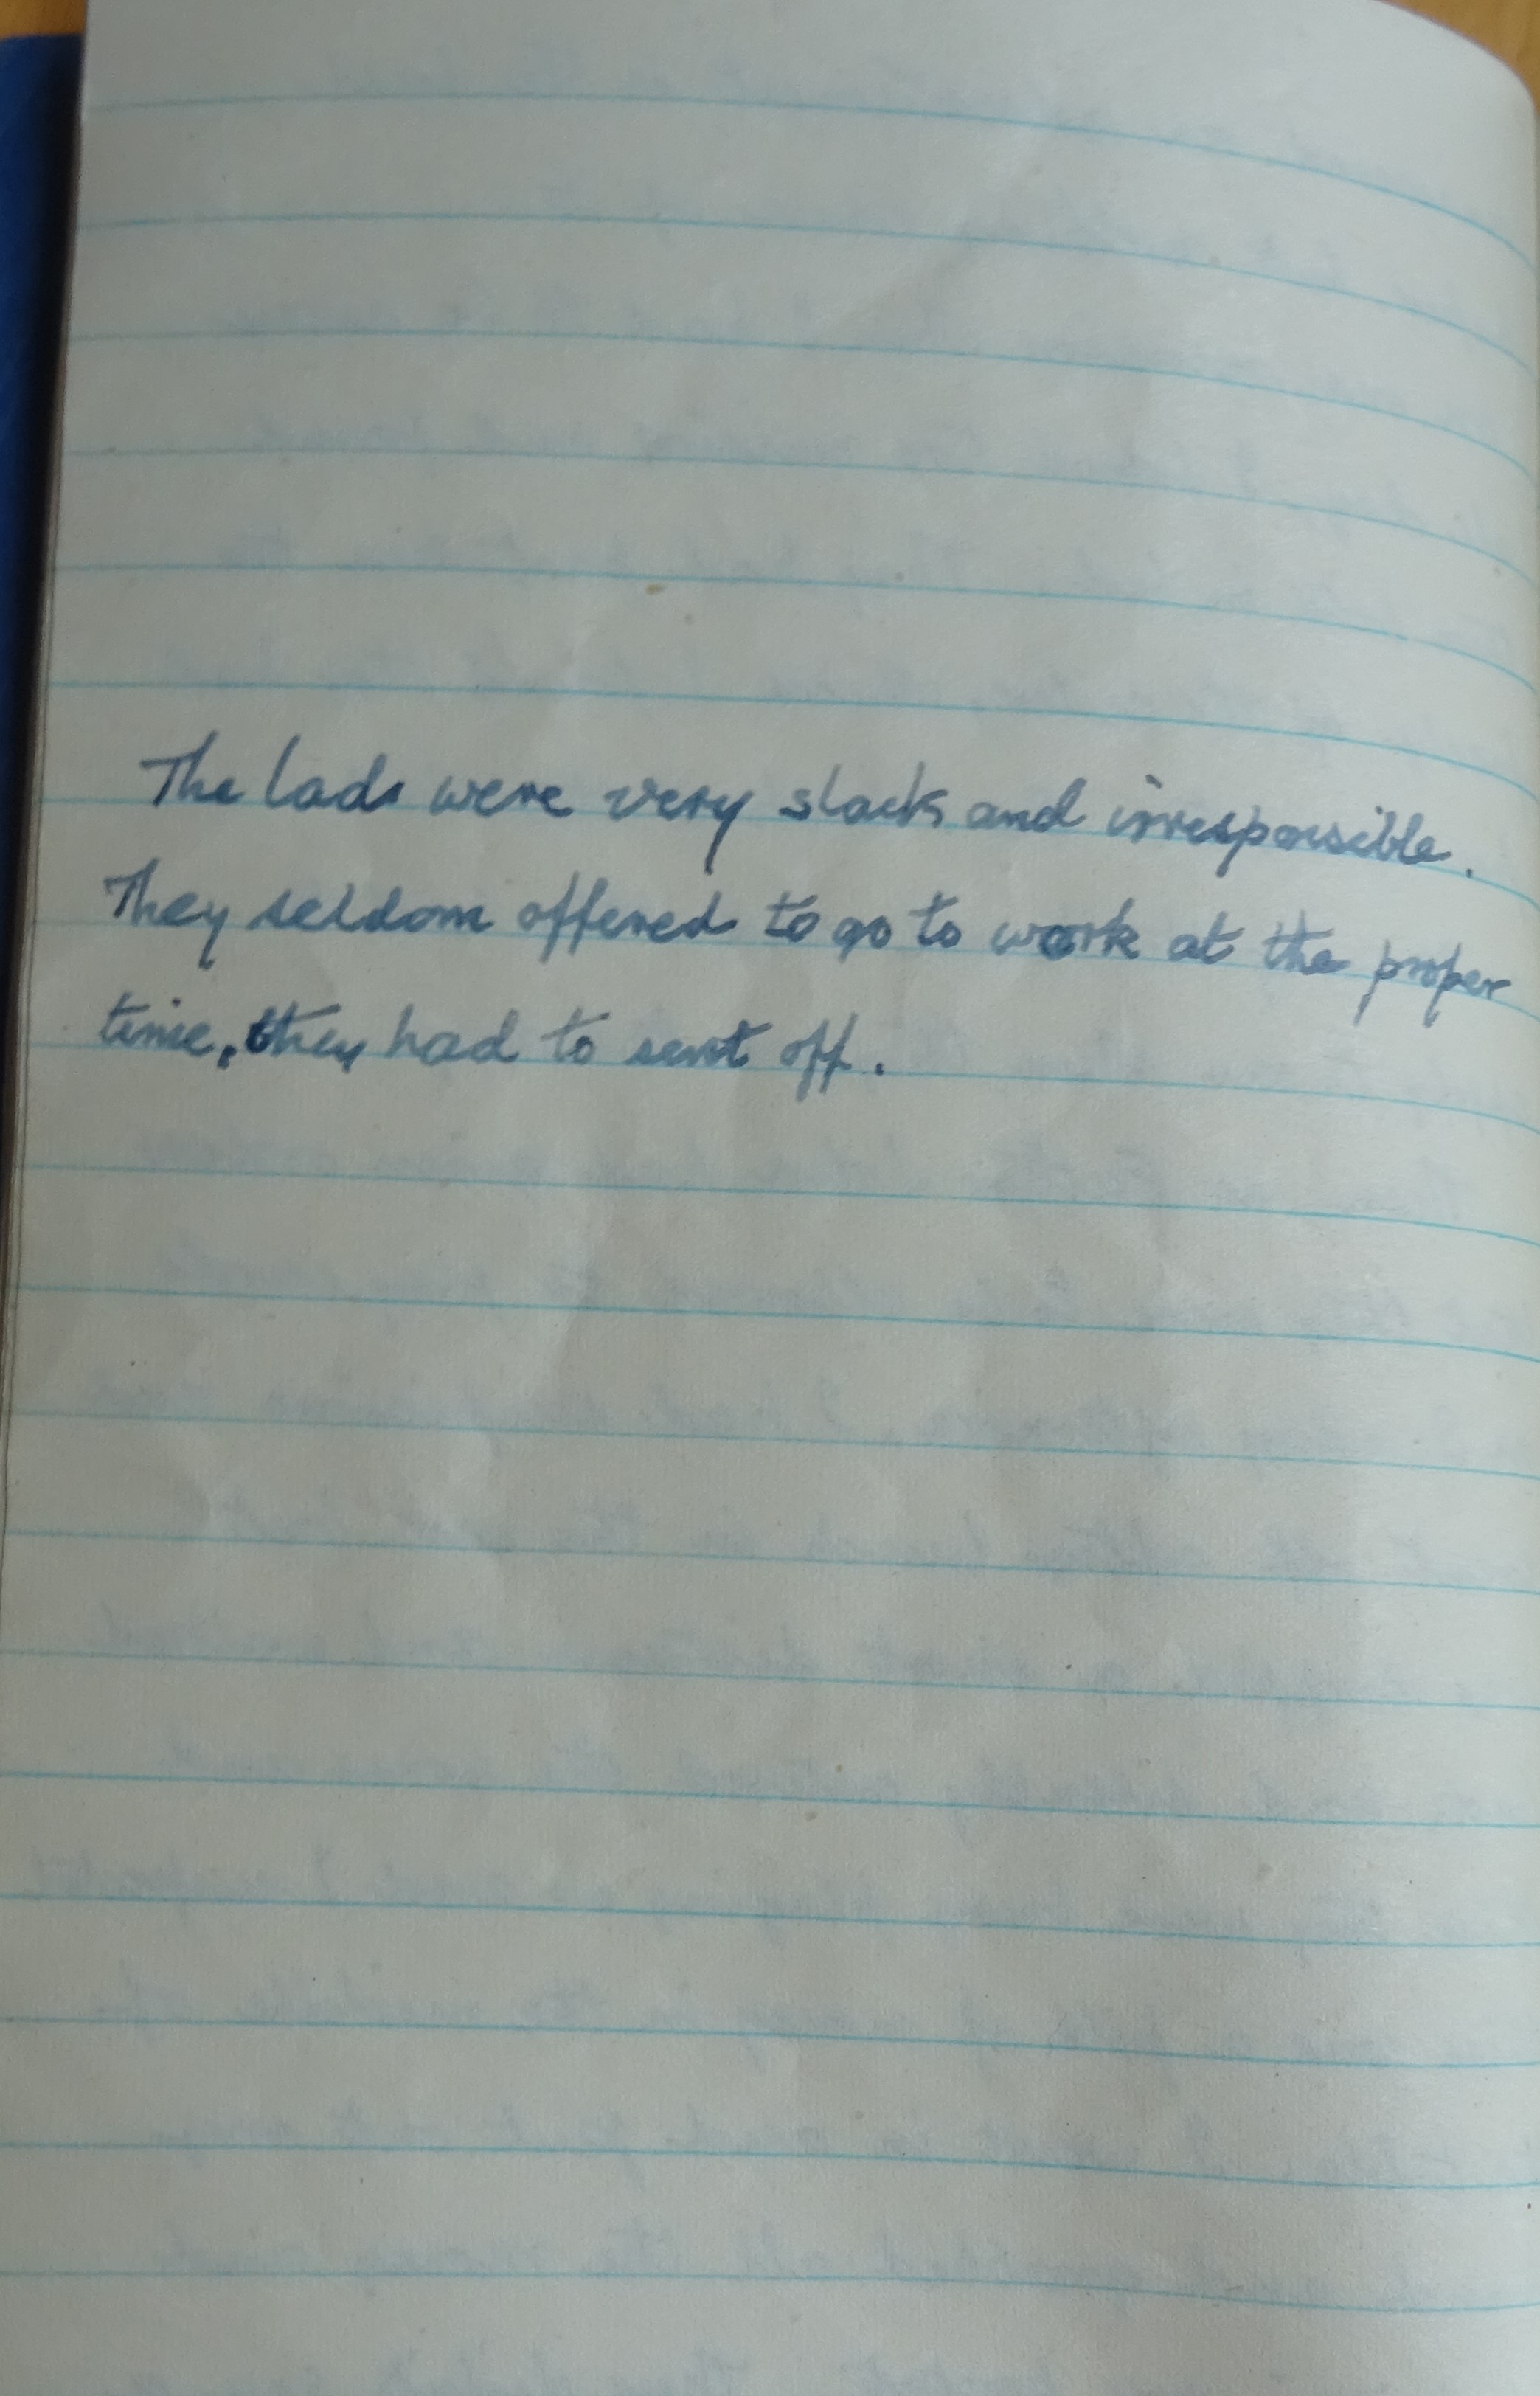 The lads were very slack and irresponsible.
They seldom offered to go to work at the proper
time, they had to sent off.